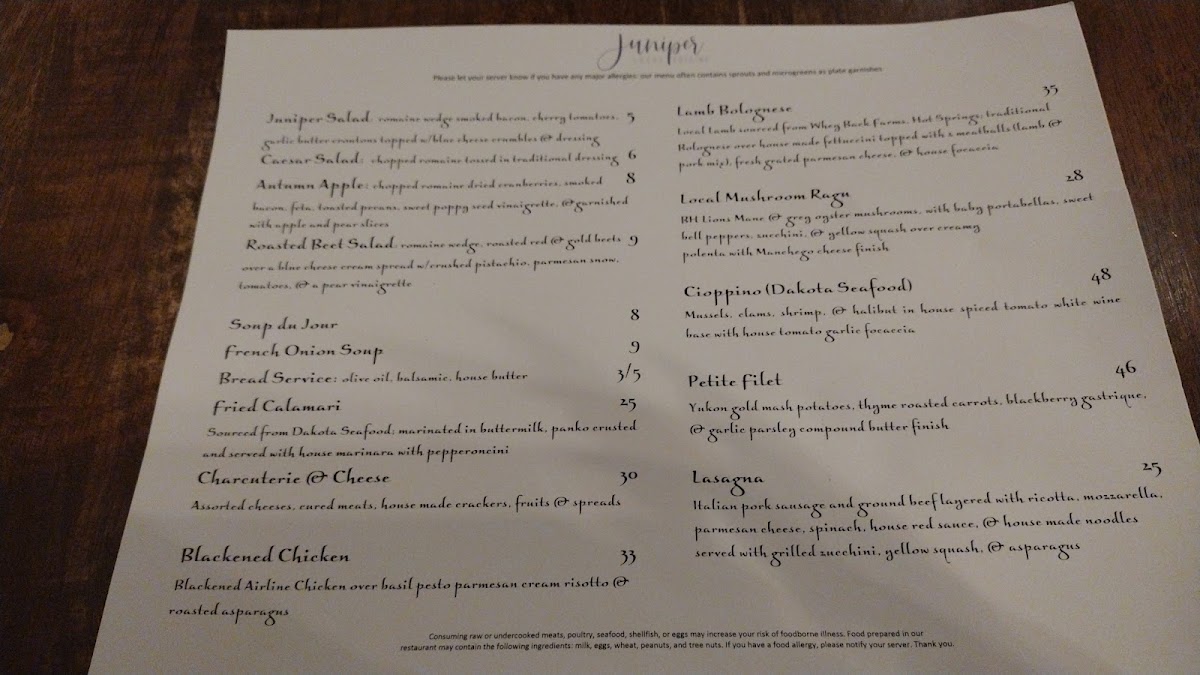 Juniper
Please let your server know if you have any major allergies: our menu often contains sprouts and microgreens as plate garnishes
Juniper Salad: romaine wedge smoked bacon, cherry tomatoes, 5
garlic butter croutons topped w/blue cheese crumbles & dressing
Caesar Salad: chopped romaine tossed in traditional dressing 6
Autumn Apple: chopped romaine dried cranberries, smoked 8
bacon, feta, toasted pecans, sweet poppy seed vinaigrette, @garnished
with apple and pear slices
Roasted Beet Salad: romaine wedge, roasted red & gold beets 9
over a blue cheese cream spread w/crushed pistachio, parmesan snow,
tomatoes, & a pear vinaigrette
Soup du Jour 8
French Onion Soup 9
Bread Service: olive oil, balsamic, house butter 3/5
Fried Calamari 25
Sourced from Dakota Seafood; marinated in buttermilk, panko crusted
and served with house marinara with pepperoncini
Charcuterie & Cheese 30
Assorted cheeses, cured meats, house made crackers, fruits & spreads
Blackened Chicken 33
Blackened Airline Chicken over basil pesto parmesan cream risotto &
roasted asparagus
Lamb Bolognese 35
Local Lamb sourced from Whey Back Farms, Hot Springs; traditional
Bolognese over house made fettuccini topped with 2 meatballs (lamb &
pork mix), fresh grated parmesan cheese, & house focaccia
Local Mushroom Ragu 28
BH Lions Mane & grey oyster mushrooms, with baby portabellas, sweet
bell peppers, zucchini, & yellow squash over creamy
polenta with Manchego cheese finish
Cioppino (Dakota Seafood) 48
Mussels, clams, shrimp, & halibut in house spiced tomato white wine
base with house tomato garlic focaccia
Petite Filet 46
Yukon gold mash potatoes, thyme roasted carrots, blackberry gastrique,
& garlic parsley compound butter finish
Lasagna 25
Italian pork sausage and ground beef layered with ricotta, mozzarella,
parmesan cheese, spinach, house red sauce, & house made noodles
served with grilled zucchini, yellow squash, & asparagus
Consuming raw or undercooked meats, poultry, seafood, shellfish, or eggs may increase your risk of foodborne illness. Food prepared in our
restaurant may contain the following ingredients: milk, eggs, wheat, peanuts, and tree nuts. If you have a food allergy, please notify your server. Thank you.